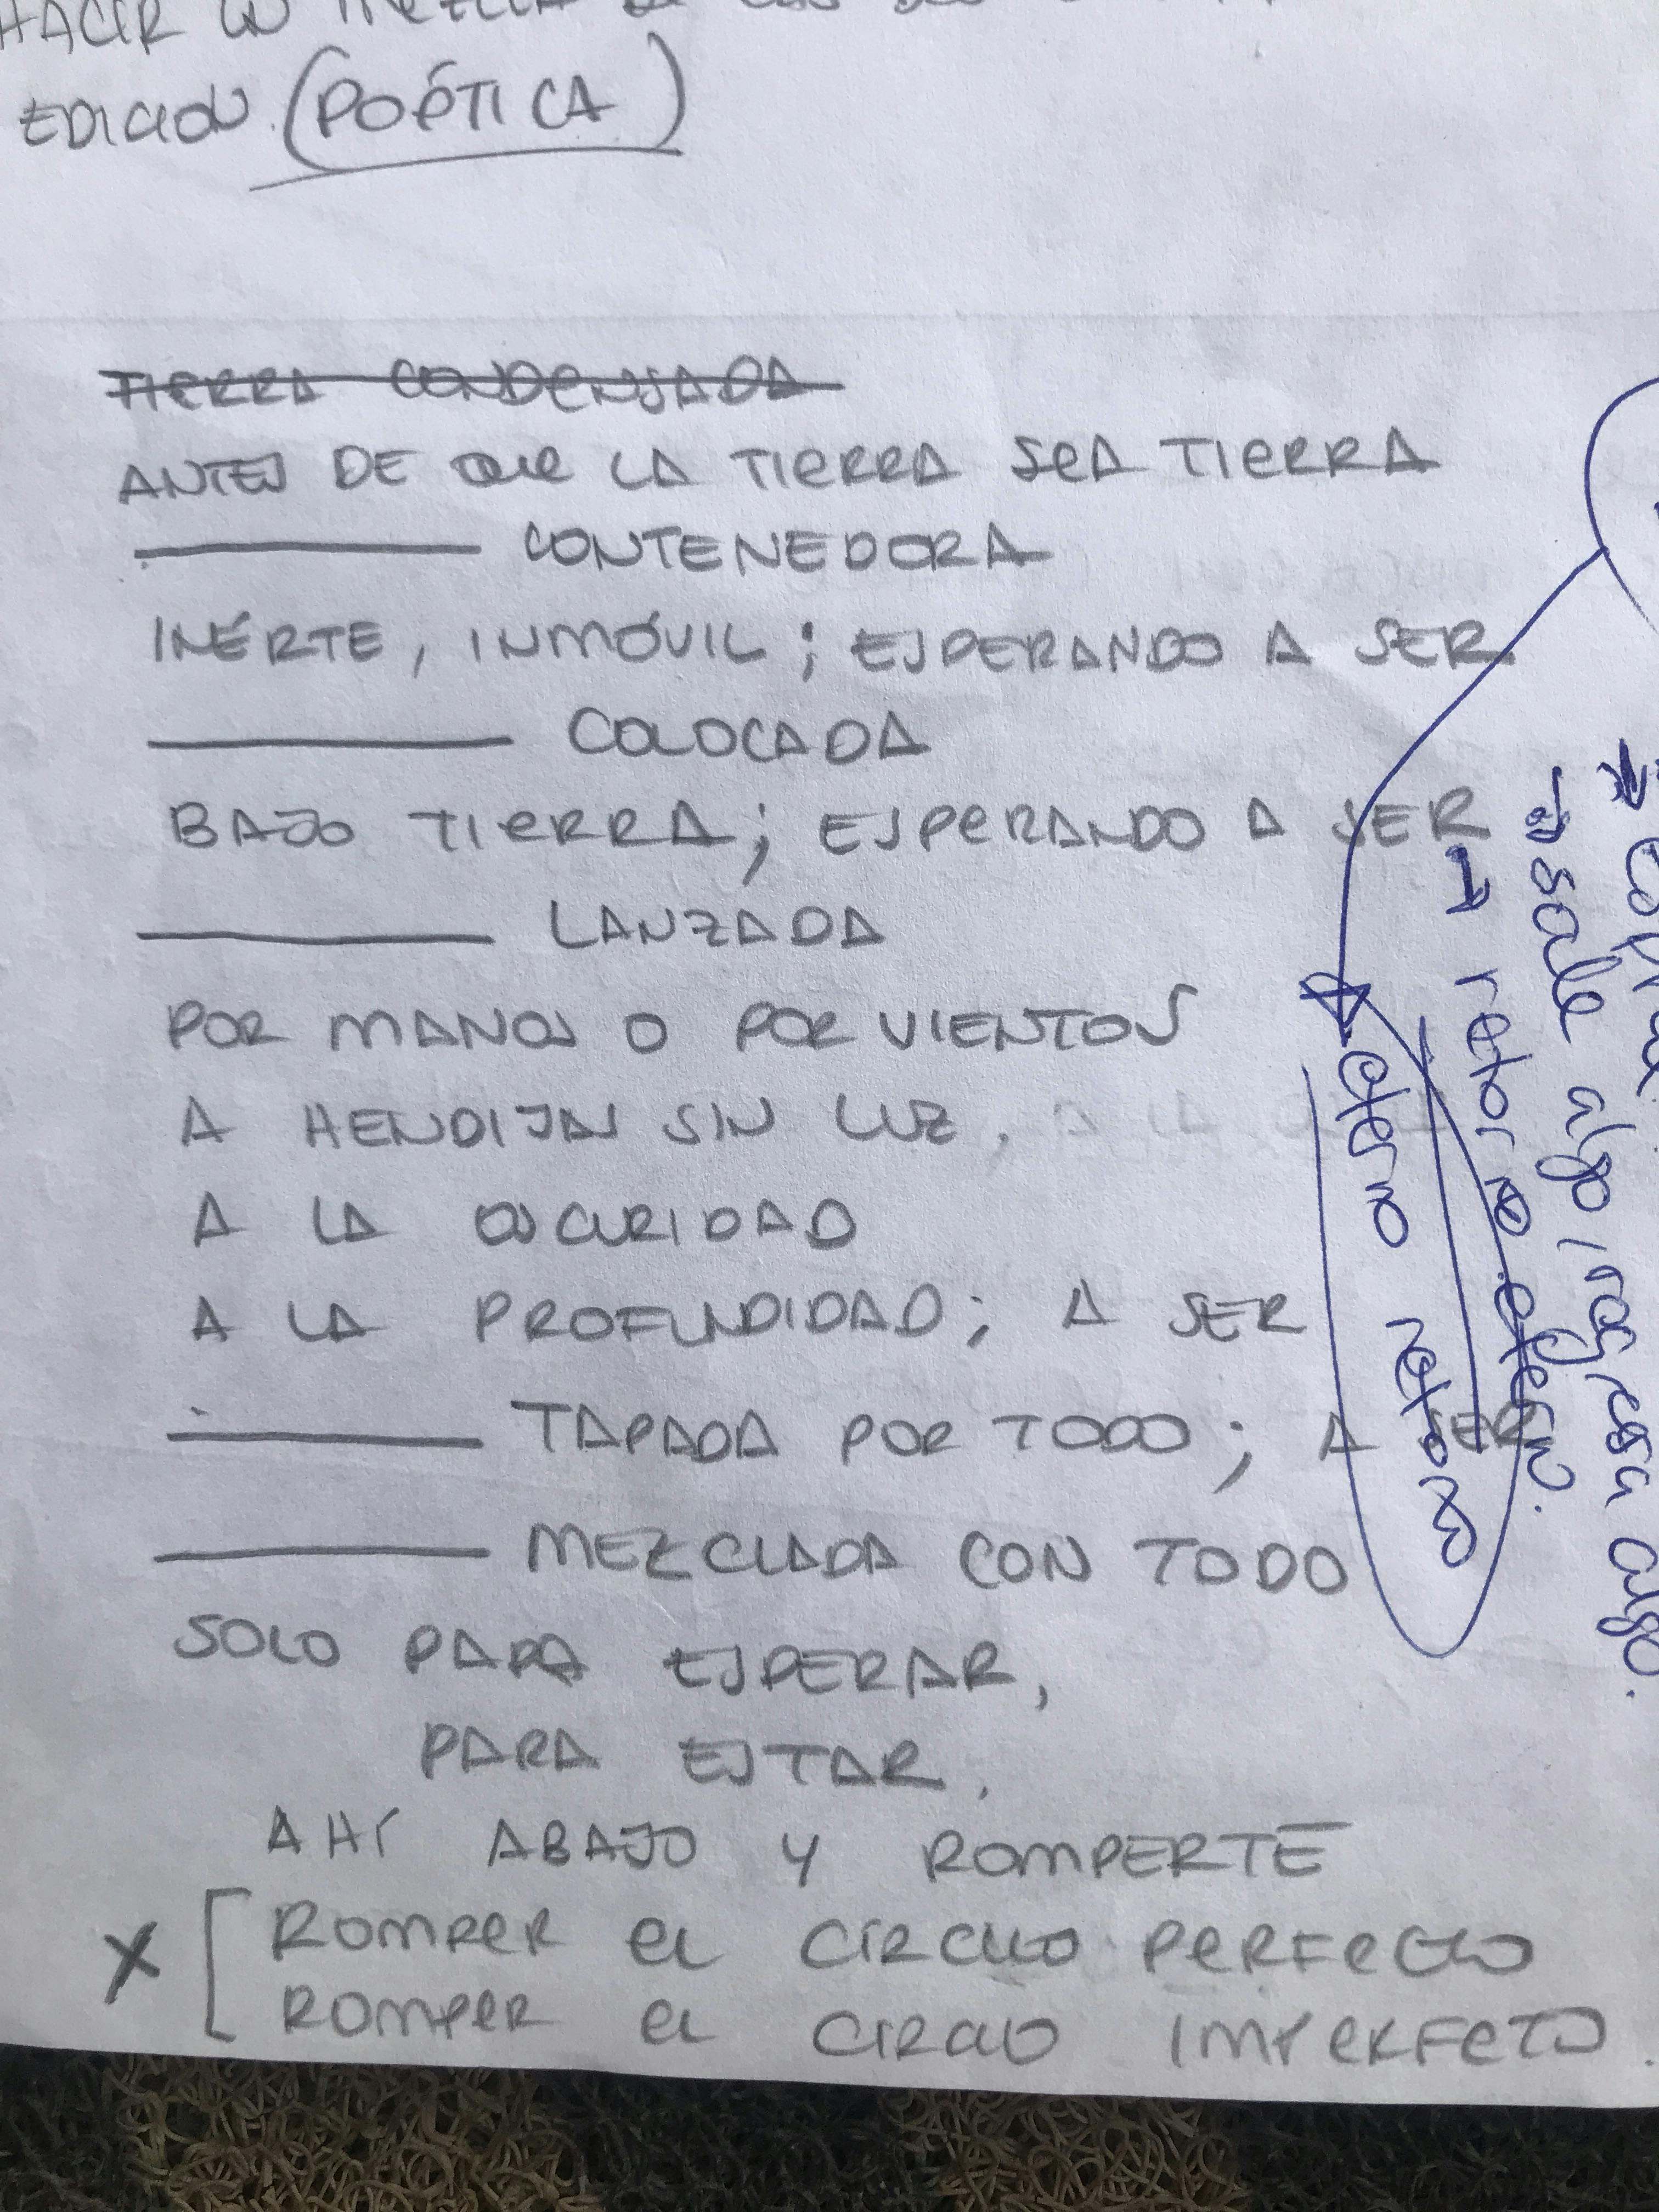 HACER
EDICION (POÉTICA)
TIERRA CONDENSADA
ANTES DE QUE LA TIERRA SEA TIERRA
________ CONTENEDORA
INÉRTE, INMÓVIL; ESPERANDO A SER.
________ COLOCADA
BAJO TIERRA; ESPERANDO A SER
________ LANZADA
POR MANOS O POR VIENTOS
A HENDIJAS SIN LUZ,
A LA OSCURIDAD
A LA PROFUNDIDAD; A SER
________ TAPADA POR TODO; A SER
________ MEZCLADA CON TODO
SOLO PARA ESPERAR,
PARA ESTAR,
AHÍ ABAJO Y ROMPERTE
X [ ROMPER EL CÍRCULO PERFECTO
ROMPER EL CIRCULO IMPERFETO.
→ sale algo ingresa algo.
→ retorno eterno.
eterno retorno